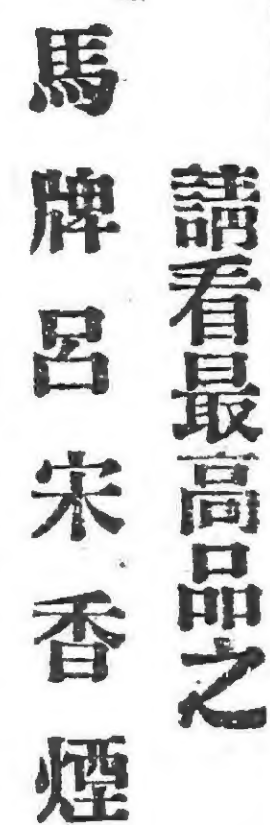 請看最高品之
馬牌呂宋香煙